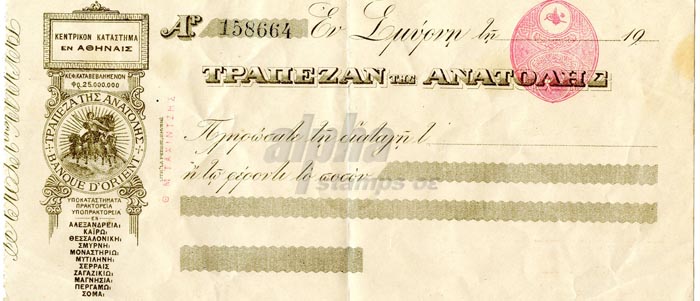 ΚΕΝΤΡΙΚΟΝ ΚΑΤΑΣΤΗΜΑ
ΕΝ ΑΘΗΝΑΙΣ
ΚΕΦ. ΚΑΤΑΒΕΒΛΗΜΕΝΟΝ
Φρ. 25.000.000
ΤΡΑΠΕΖΑ ΤΗΣ ΑΝΑΤΟΛΗΣ
BANQUE D'ORIENT
ΥΠΟΚΑΤΑΣΤΗΜΑΤΑ
ΠΡΑΚΤΟΡΕΙΑ
ΥΠΟΠΡΑΚΤΟΡΕΙΑ
ΕΝ
ΑΛΕΞΑΝΔΡΕΙΑ:
ΚΑΪΡΩ:
ΘΕΣΣΑΛΟΝΙΚΗ:
ΣΜΥΡΝΗ:
ΜΟΝΑΣΤΗΡΙΩ:
ΜΥΤΙΛΗΝΗ:
ΣΕΡΡΑΙΣ
ΖΑΓΑΖΙΚΙΩ:
ΜΑΓΝΗΣΙΑ:
ΠΕΡΓΑΜΩ:
ΣΟΜΑ:
Αρ 158664
Ἐν Σμύρνῃ τῇ 19
ΤΡΑΠΕΖΑΝ ΤΗΣ ΑΝΑΤΟΛΗΣ
Πληρώσατε τῇ διαταγῇ τ
ἢ τῷ φέροντι τὸ ποσὸν
alpha
stamps OE